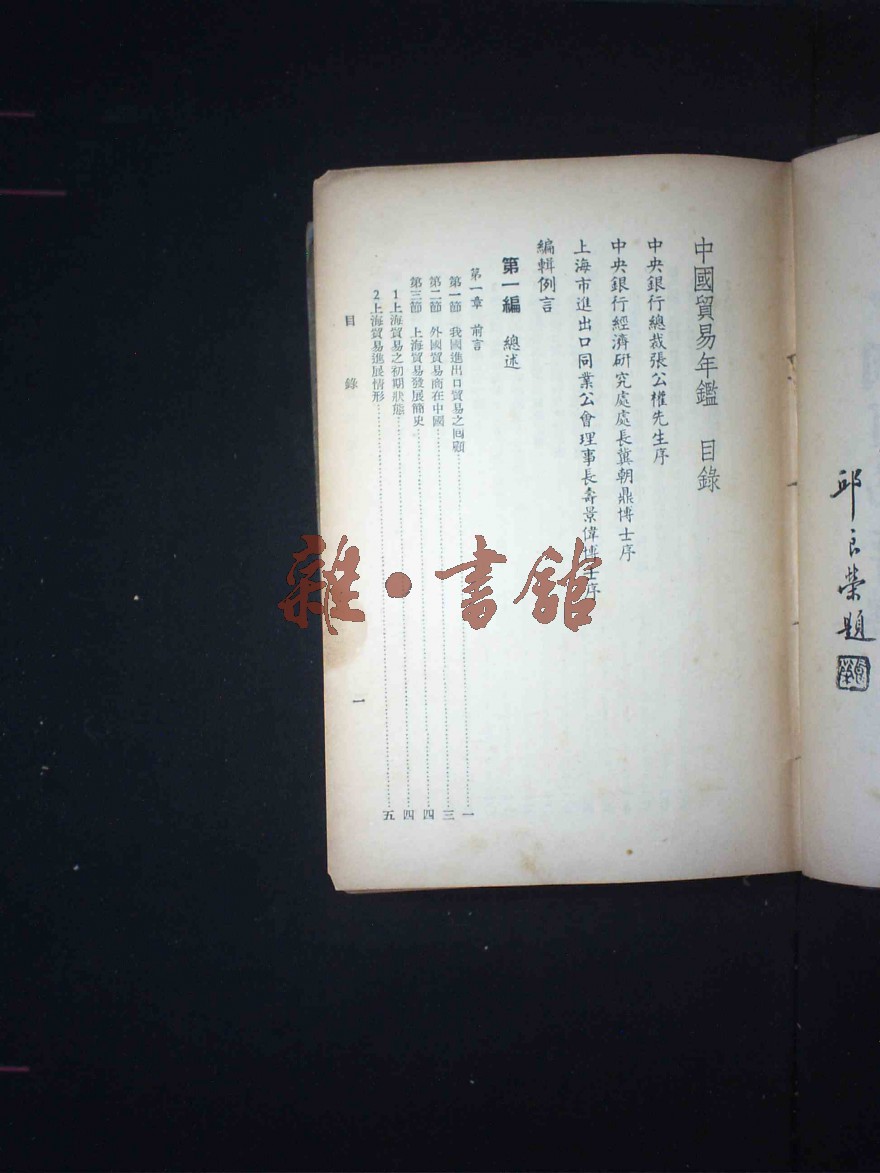 邱良榮題
中國貿易年鑑 目錄
中央銀行總裁張公權先生序
中央銀行經濟研究處處長冀朝鼎博士序
上海市進出口同業公會理事長壽景偉博士序
編輯例言
第一編 總述
第一章 前言
第一節 我國進出口貿易之回顧 一
第二節 外國貿易商在中國 三
第三節 上海貿易發展簡史 四
1上海貿易之初期狀態 四
2上海貿易進展情形 五
目 錄
一
雜·書館